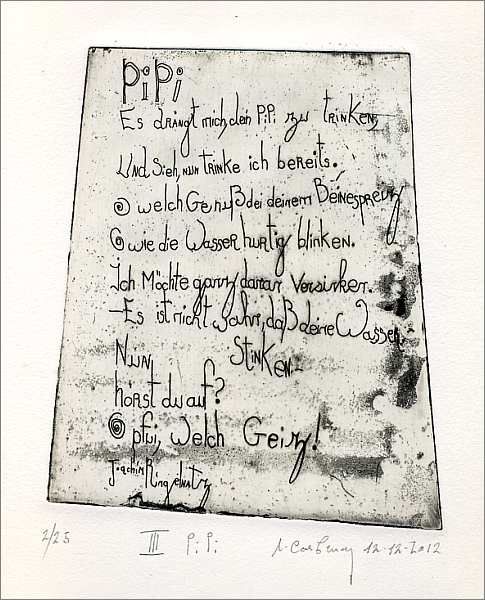 PiPi
Es drängt mich, dein PiPi zu trinken,
Und Sieh, nun trinke ich bereits.
O welch Genuß bei deinem Beinespreiz
O wie die Wasser hurtig blinken.
Ich Möchte ganz daran Versinken.
-Es ist nicht wahr, daß deine Wasser
Stinken-
Nun,
hörst du auf?
O pfui, welch Geiz!
Joachim Ringelnatz
2/25 III PiPi 12-12-2012